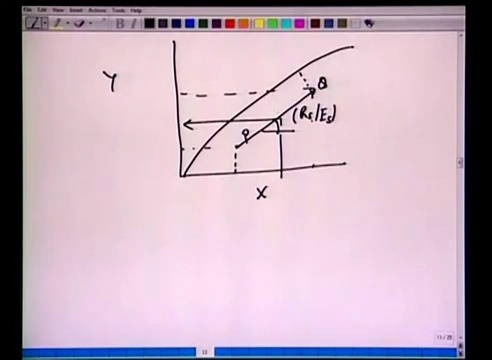 File Edit View Insert Actions Tools Help
Y
Q
(Rs/Es)
P
X
11/25
12